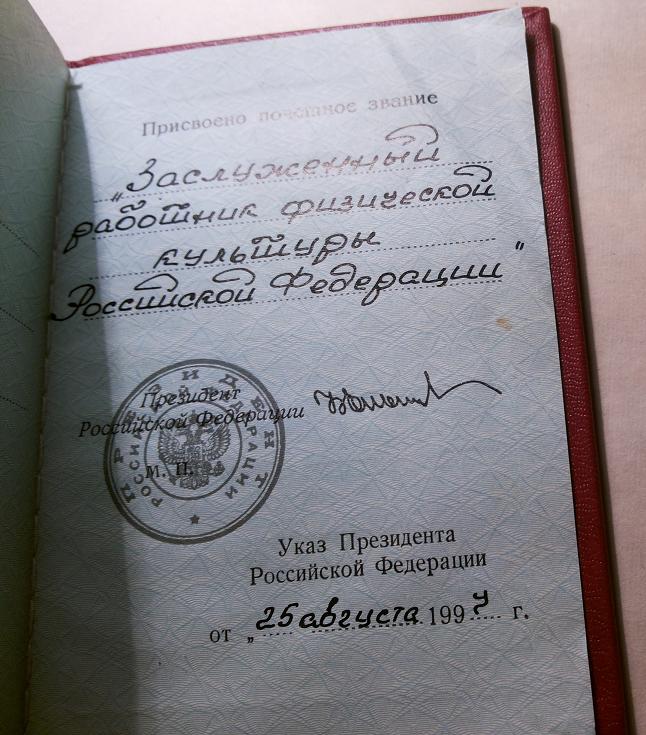 Присвоено почетное звание
„Заслуженный
работник физической
культуры
Российской Федерации"
Президент
Российской Федерации
М. П.
ПРЕЗИДЕНТ
РОССИЙСКОЙ ФЕДЕРАЦИИ
Указ Президента
Российской Федерации
от „25 августа 1997 г.